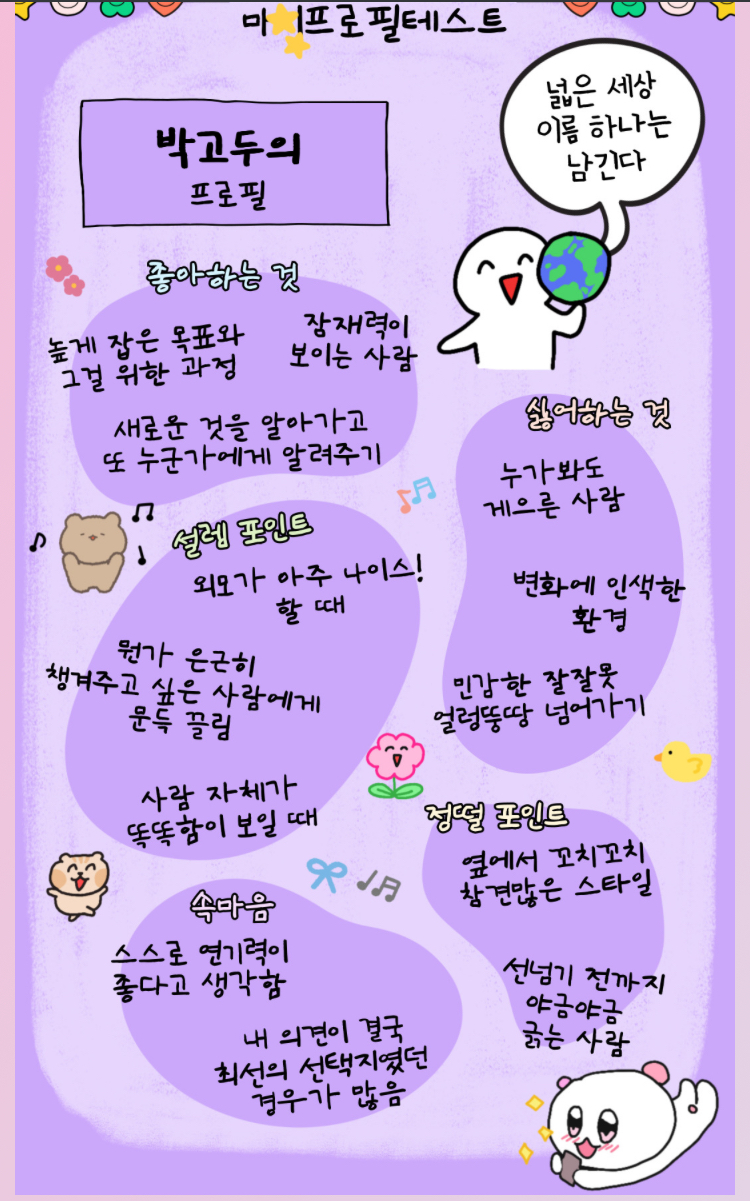 마이프로필테스트
넓은 세상
이름 하나는
남긴다
박고두의
프로필
좋아하는 것
높게 잡은 목표와
그걸 위한 과정
잠재력이
보이는 사람
새로운 것을 알아가고
또 누군가에게 알려주기
싫어하는 것
누가봐도
게으른 사람
변화에 인색한
환경
민감한 잘잘못
얼렁뚱땅 넘어가기
설렘 포인트
외모가 아주 나이스!
할 때
뭔가 은근히
챙겨주고 싶은 사람에게
문득 끌림
사람 자체가
똑똑함이 보일 때
정떨 포인트
옆에서 꼬치꼬치
참견많은 스타일
선넘기 전까지
야금야금
긁는 사람
속마음
스스로 연기력이
좋다고 생각함
내 의견이 결국
최선의 선택지였던
경우가 많음